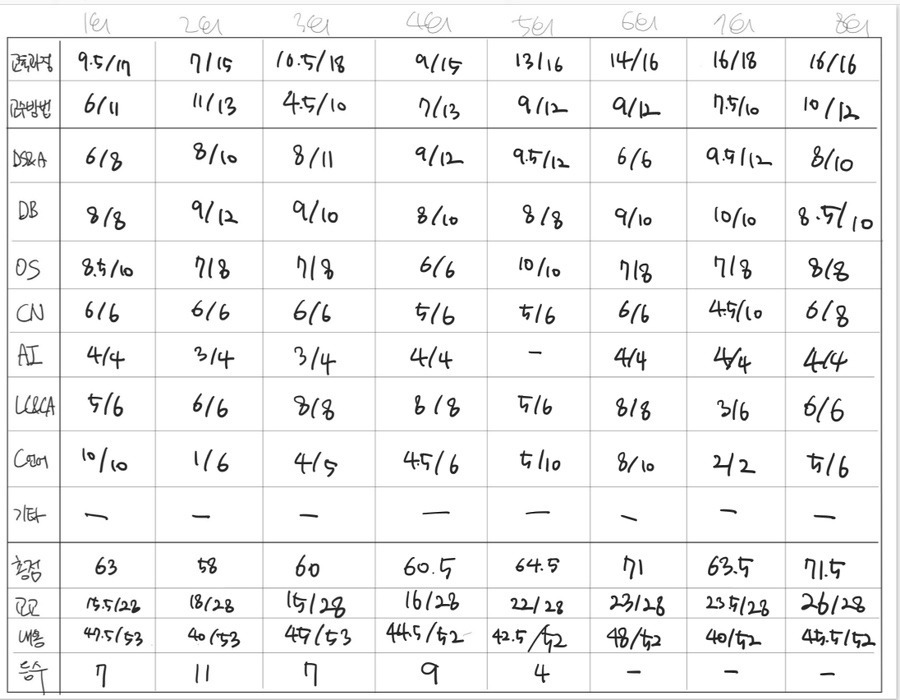 1회 2회 3회 4회 5회 6회 7회 8회
교육과정 9.5/17 7/15 10.5/18 9/15 13/16 14/16 16/18 16/16
교수방법 6/11 11/13 4.5/10 7/13 9/12 9/12 7.5/10 10/12
DS&A 6/8 8/10 8/11 9/12 9.5/12 6/6 9.5/12 8/10
DB 8/8 9/12 9/10 8/10 8/8 9/10 10/10 8.5/10
OS 8.5/10 7/8 7/8 6/6 10/10 7/8 7/8 8/8
CN 6/6 6/6 6/6 5/6 5/6 6/6 4.5/10 6/8
AI 4/4 3/4 3/4 4/4 - 4/4 4/4 4/4
LC&CA 5/6 6/6 8/8 8/8 5/6 8/8 3/6 6/6
C언어 10/10 1/6 4/5 4.5/6 5/10 8/10 2/2 5/6
기타 - - - - - - - -
총점 63 58 60 60.5 64.5 71 63.5 71.5
교교 15.5/28 18/28 15/28 16/28 22/28 23/28 23.5/28 26/28
내용 47.5/53 40/53 45/53 44.5/52 42.5/52 48/52 40/52 45.5/52
등수 7 11 7 9 4 - - -